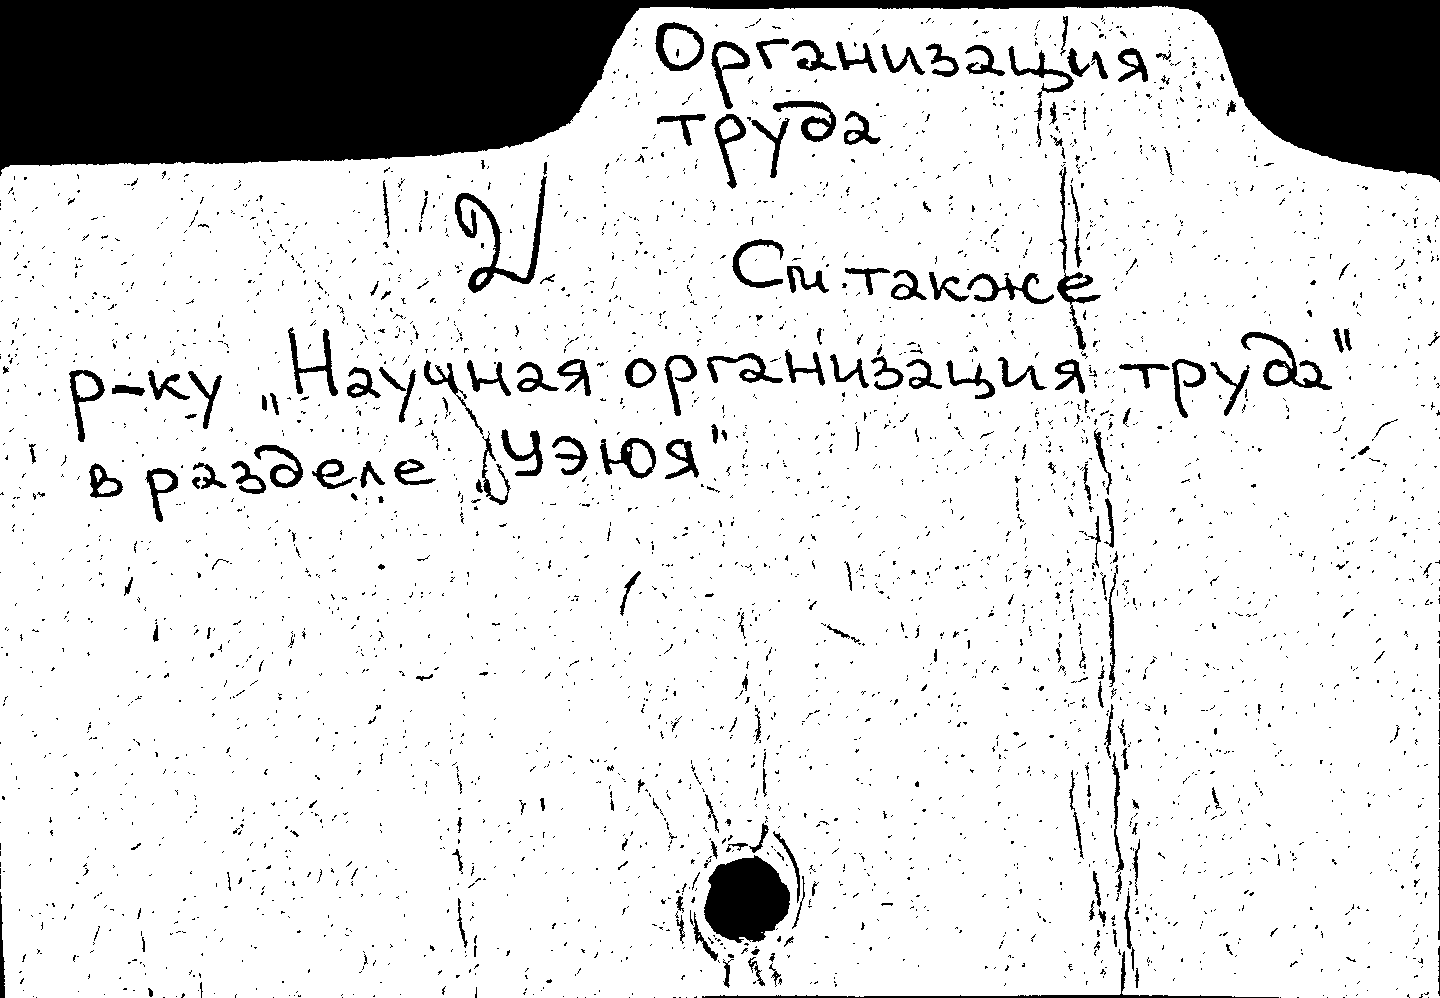 Организация
труда
См. также
р-ку „Научная организация труда"
в разделе „УЭЮЯ"